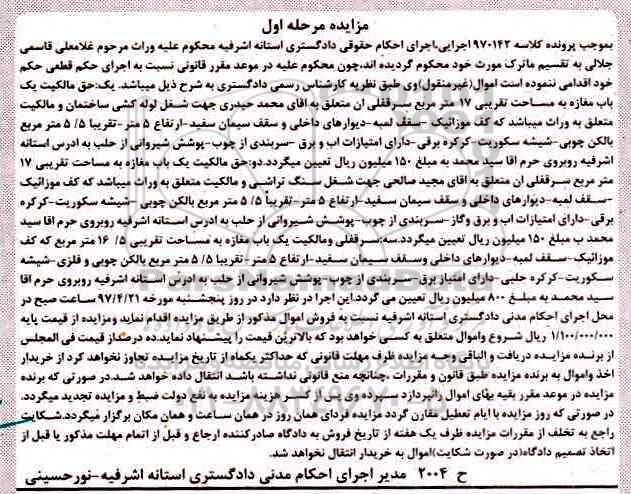 مزایده مرحله اول
بموجب پرونده کلاسه ۹۷۰۱۴۲اجرایی،اجرای احکام حقوقی دادگستری استانه اشرفیه محکوم علیه وراث مرحوم غلامعلی قاسمی
جلالی به تقسیم ماترک مورث خود محکوم گردیده اند،چون محکوم علیه در موعد مقرر قانونی نسبت به اجرای حکم قطعی حکم
خود اقدامی ننموده است اموال(غیرمنقول)وی طبق نظریه کارشناس رسمی دادگستری به شرح ذیل میباشد. یک:حق مالکیت یک
باب مغازه به مساحت تقریبی ۱۷ متر مربع سرقفلی ان متعلق به اقای محمد حیدری جهت شغل لوله کشی ساختمان و مالکیت
متعلق به وراث میباشد که کف موزائیک -سقف لمبه-دیوارهای داخلی و سقف سیمان سفید-ارتفاع ۵ متر-تقریبا ۵/ ۵ متر مربع
بالکن چوبی-شیشه سکوریت-کرکره برقی -دارای امتیازات اب و برق -سربندی از چوب-پوشش شیروانی از حلب به ادرس استانه
اشرفیه روبروی حرم اقا سید محمد به مبلغ ۱۵۰ میلیون ریال تعیین میگردد.دو:حق مالکیت یک باب مغازه به مساحت تقریبی ۱۷
متر مربع سرقفلی ان متعلق به اقای مجید صالحی جهت شغل سنگ تراشی و مالکیت متعلق به وراث میباشد که کف موزائیک
-سقف لمبه-دیوارهای داخلی و سقف سیمان سفید-ارتفاع ۵ متر-تقریبا ۵/ ۵ متر مربع بالکن چوبی -شیشه سکوریت-کرکره
برقی-دارای امتیازات اب و برق وگاز-سربندی از چوب-پوشش شیروانی از حلب به ادرس استانه اشرفیه روبروی حرم اقا سید
محمد ب مبلغ ۱۵۰ میلیون ریال تعیین میگردد.سه:سرقفلی ومالکیت یک باب مغازه به مساحت تقریبی ۵/ ۱۶ متر مربع که کف
موزائیک-سقف لمبه-دیوارهای داخلی وسقف سیمان سفید-ارتفاع ۵ متر-تقریبا ۵/ ۵ متر مربع بالکن چوبی و فلزی-شیشه
سکوریت-کرکره حلبی-دارای امتیاز برق-سربندی از چوب-پوشش شیروانی از حلب به ادرس استانه اشرفیه روبروی حرم اقا
سید محمد به مبلغ ۸۰۰ میلیون ریال تعیین می گردد.این اجرا در نظر دارد در روز پنجشنبه مورخه ۹۷/۴/۲۱ ساعت صبح در
محل اجرای احکام مدنی دادگستری استانه اشرفیه نسبت به فروش اموال مذکور از طریق مزایده اقدام نماید ومزایده از قیمت پایه
۱/۱۰۰/۰۰۰/۰۰۰ ریال شروع واموال متعلق به کسی خواهد بود که بالاترین قیمت را پیشنهاد نماید.ده درصد از قیمت فی المجلس
از برنده مزایده دریافت و الباقی وجه مزایده ظرف مهلت قانونی که حداکثر یکماه از تاریخ مزایده تجاوز نخواهد کرد از خریدار
اخذ واموال به برنده مزایده طبق قانون و مقررات ،چنانچه منع قانونی نداشته باشد انتقال داده خواهد شد.در صورتی که برنده
مزایده در موعد مقرر بقیه بهای اموال رانپردازد سپرده وی پس از کسر هزینه مزایده به نفع دولت ضبط و مزایده تجدید میگردد.
در صورتی که روز مزایده با ایام تعطیل مقارن گردد مزایده فردای همان روز در همان ساعت و همان مکان برگزار میگردد.شکایت
راجع به تخلف از مقررات مزایده ظرف یک هفته از تاریخ فروش به دادگاه صادرکننده ارجاع و قبل از اتمام مهلت مذکور یا قبل از
اتخاذ تصمیم دادگاه(در صورت شکایت)اموال به خریدار انتقال نخواهد شد.
ح ۲۰۰۴ مدیر اجرای احکام مدنی دادگستری استانه اشرفیه-نورحسینی